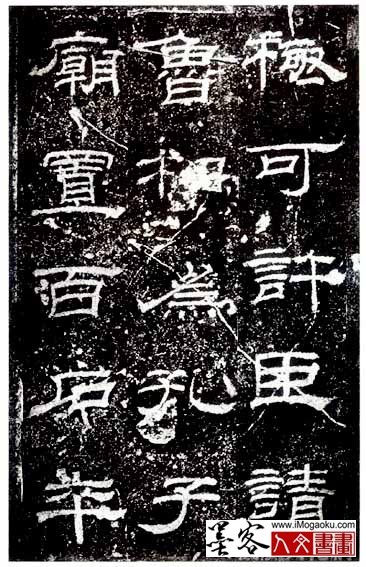 極可許臣請
魯相為孔子
廟置百石卒
墨客
www.iMogaoku.com
人文書畫